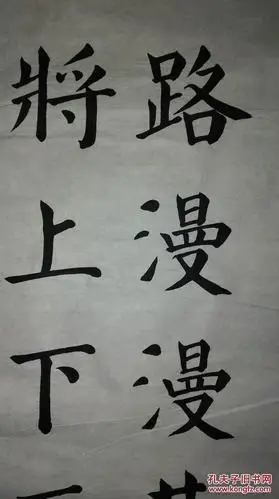 路漫漫
將上下
孔夫子旧书网